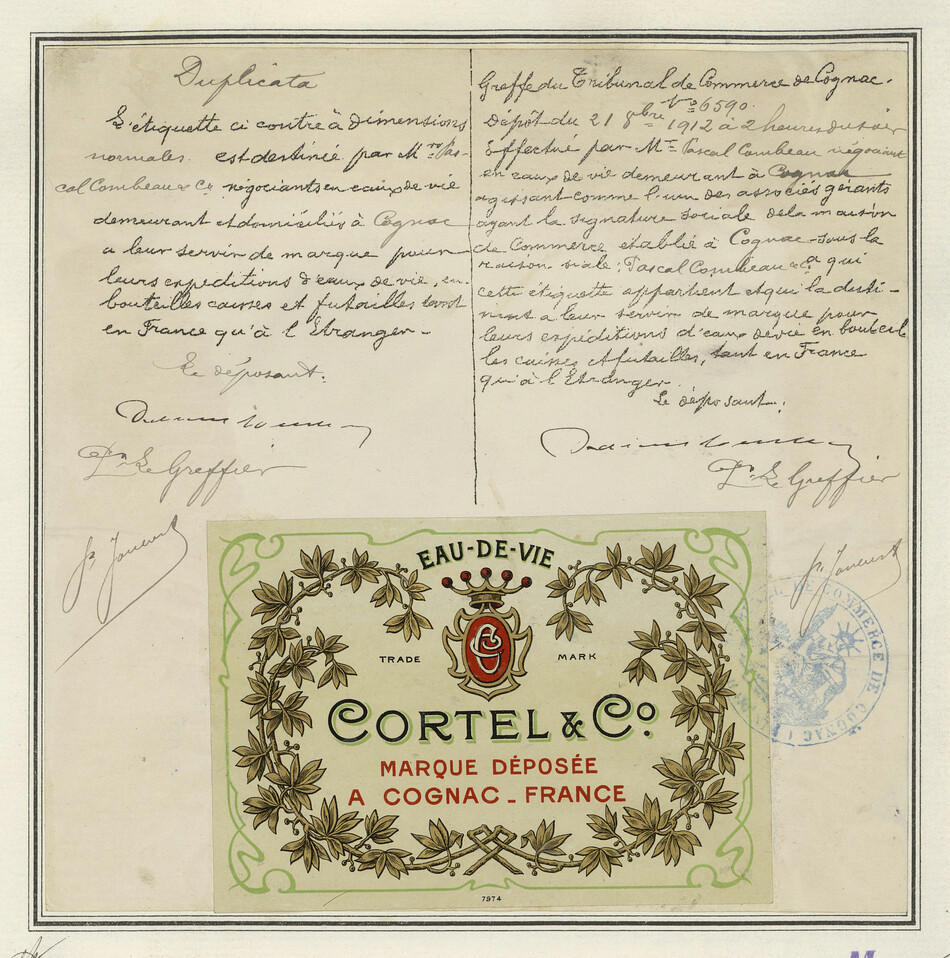 Duplicata
L'étiquette ci contre à dimensions
normales est destinié par Mrs Pas-
cal Combeau & Co négociants en eaux de vie
demeurant et domiciliés à Cognac
a leur servir de marque pour
leurs expéditions d'eaux de vie, en
bouteilles caisses et futailles tant
en France qu'à l'Etranger -
Le déposant.
Pr Le Greffier
Greffe du Tribunal de Commerce de Cognac.
No 6590.
Dépôt du 21 8bre 1912 à 2 heures du soir
Effectué par Mr Pascal Combeau négociant
en eaux de vie demeurant à Cognac
agissant comme l'un des associés gérants
ayant la signature sociale de la maison
de Commerce établie à Cognac sous la
raison ciale: Pascal Combeau & Ca qui
cette étiquette appartient et qui la desti-
nent a leur servir de marque pour
leurs expéditions d'eaux de vie en bouteil
les caisses et futailles, tant en France
qu'à l'Etranger.
Le déposant.
Pr Le Greffier
EAU-DE-VIE
TRADE MARK
CORTEL & Co.
MARQUE DÉPOSÉE
A COGNAC - FRANCE
7974
DE COMMERCE DE COGNAC
M